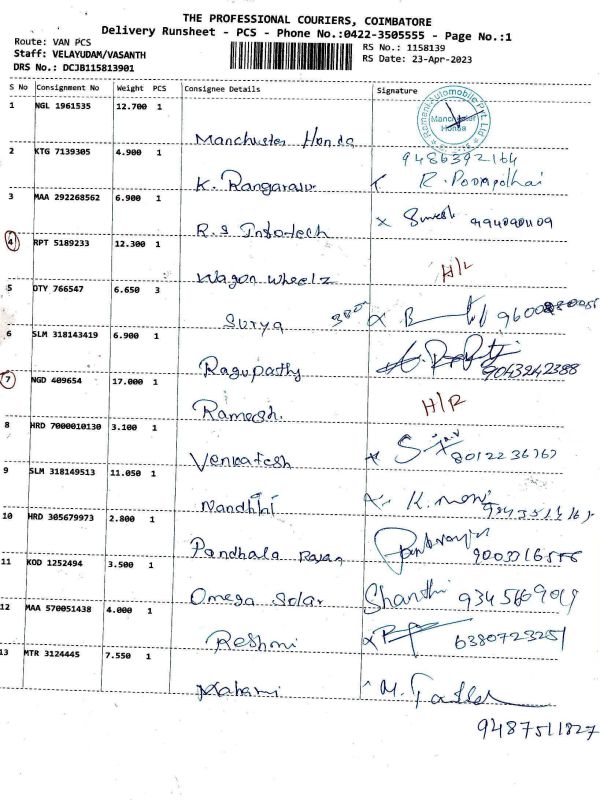 THE PROFESSIONAL COURIERS, COIMBATORE
Delivery Runsheet - PCS - Phone No.:0422-3505555 - Page No.:1
Route: VAN PCS
Staff: VELAYUDAM/VASANTH
DRS No.: DCJB115813901
RS No.: 1158139
RS Date: 23-Apr-2023
S No Consignment No Weight PCS Consignee Details Signature
1 NGL 1961535 12.700 1
Manchester Honda
Manchester Honda
9486392164
2 KTG 7139305 4.900 1
K. Rangaraju
3 MAA 292268562 6.900 1
R.S Infotech
4 RPT 5189233 12.300 1
Wagon Wheelz H/R
5 OTY 766547 6.650 3
Surya
6 SLM 318143419 6.900 1
Ragupathy 9043242388
7 NGD 409654 17.000 1
Ramesh. H/R
8 HRD 7000010130 3.100 1
Venkatesh
9 SLM 318149513 11.050 1
Nandhini
10 HRD 305679973 2.800 1
Pandhala Rajan
11 KOD 1252494 3.500 1
Omega Solar Shanthi
12 MAA 570051438 4.000 1
Reshmi 6380723251
13 MTR 3124445 7.550 1
9487511827